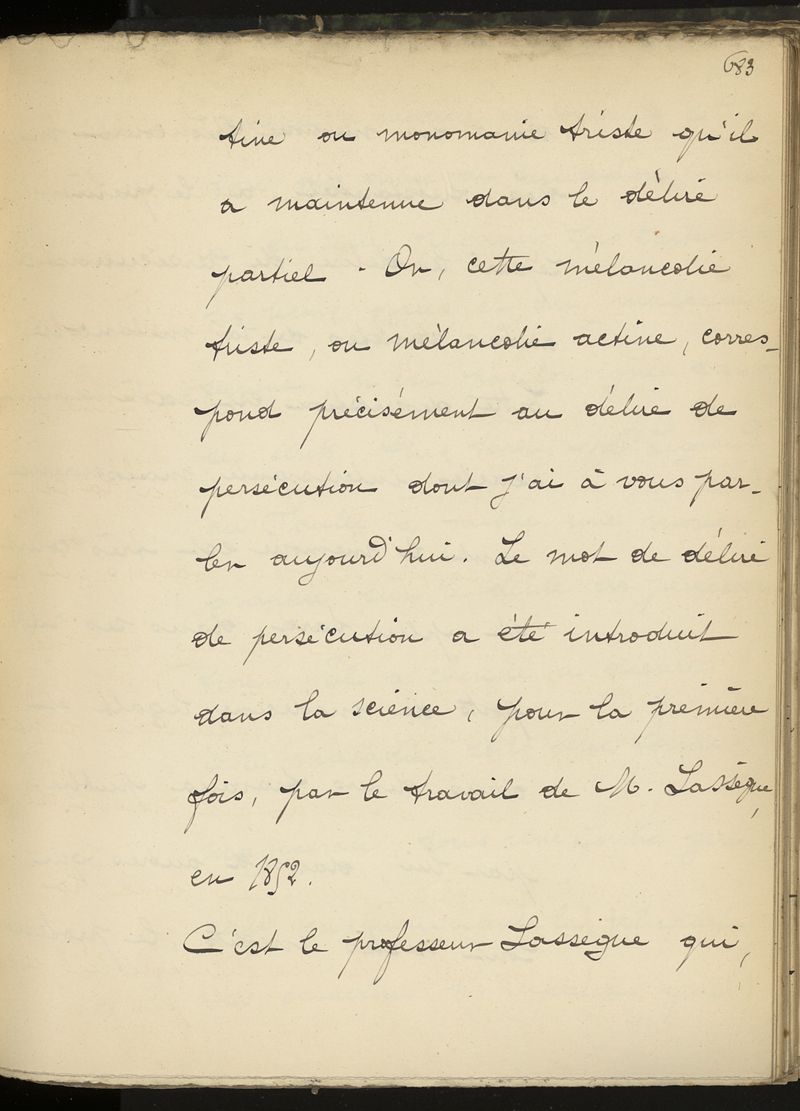 683
tive ou monomanie triste qu'il
a maintenue dans le délire
partiel. Or, cette mélancolie
triste, ou mélancolie active, corres-
pond précisément au délire de
persécution dont j'ai à vous par-
ler aujourd'hui. Le mot de délire
de persécution a été introduit
dans la science, pour la première
fois, par le travail de M. Lassègue,
en 1852.
C'est le professeur Lassègue qui,